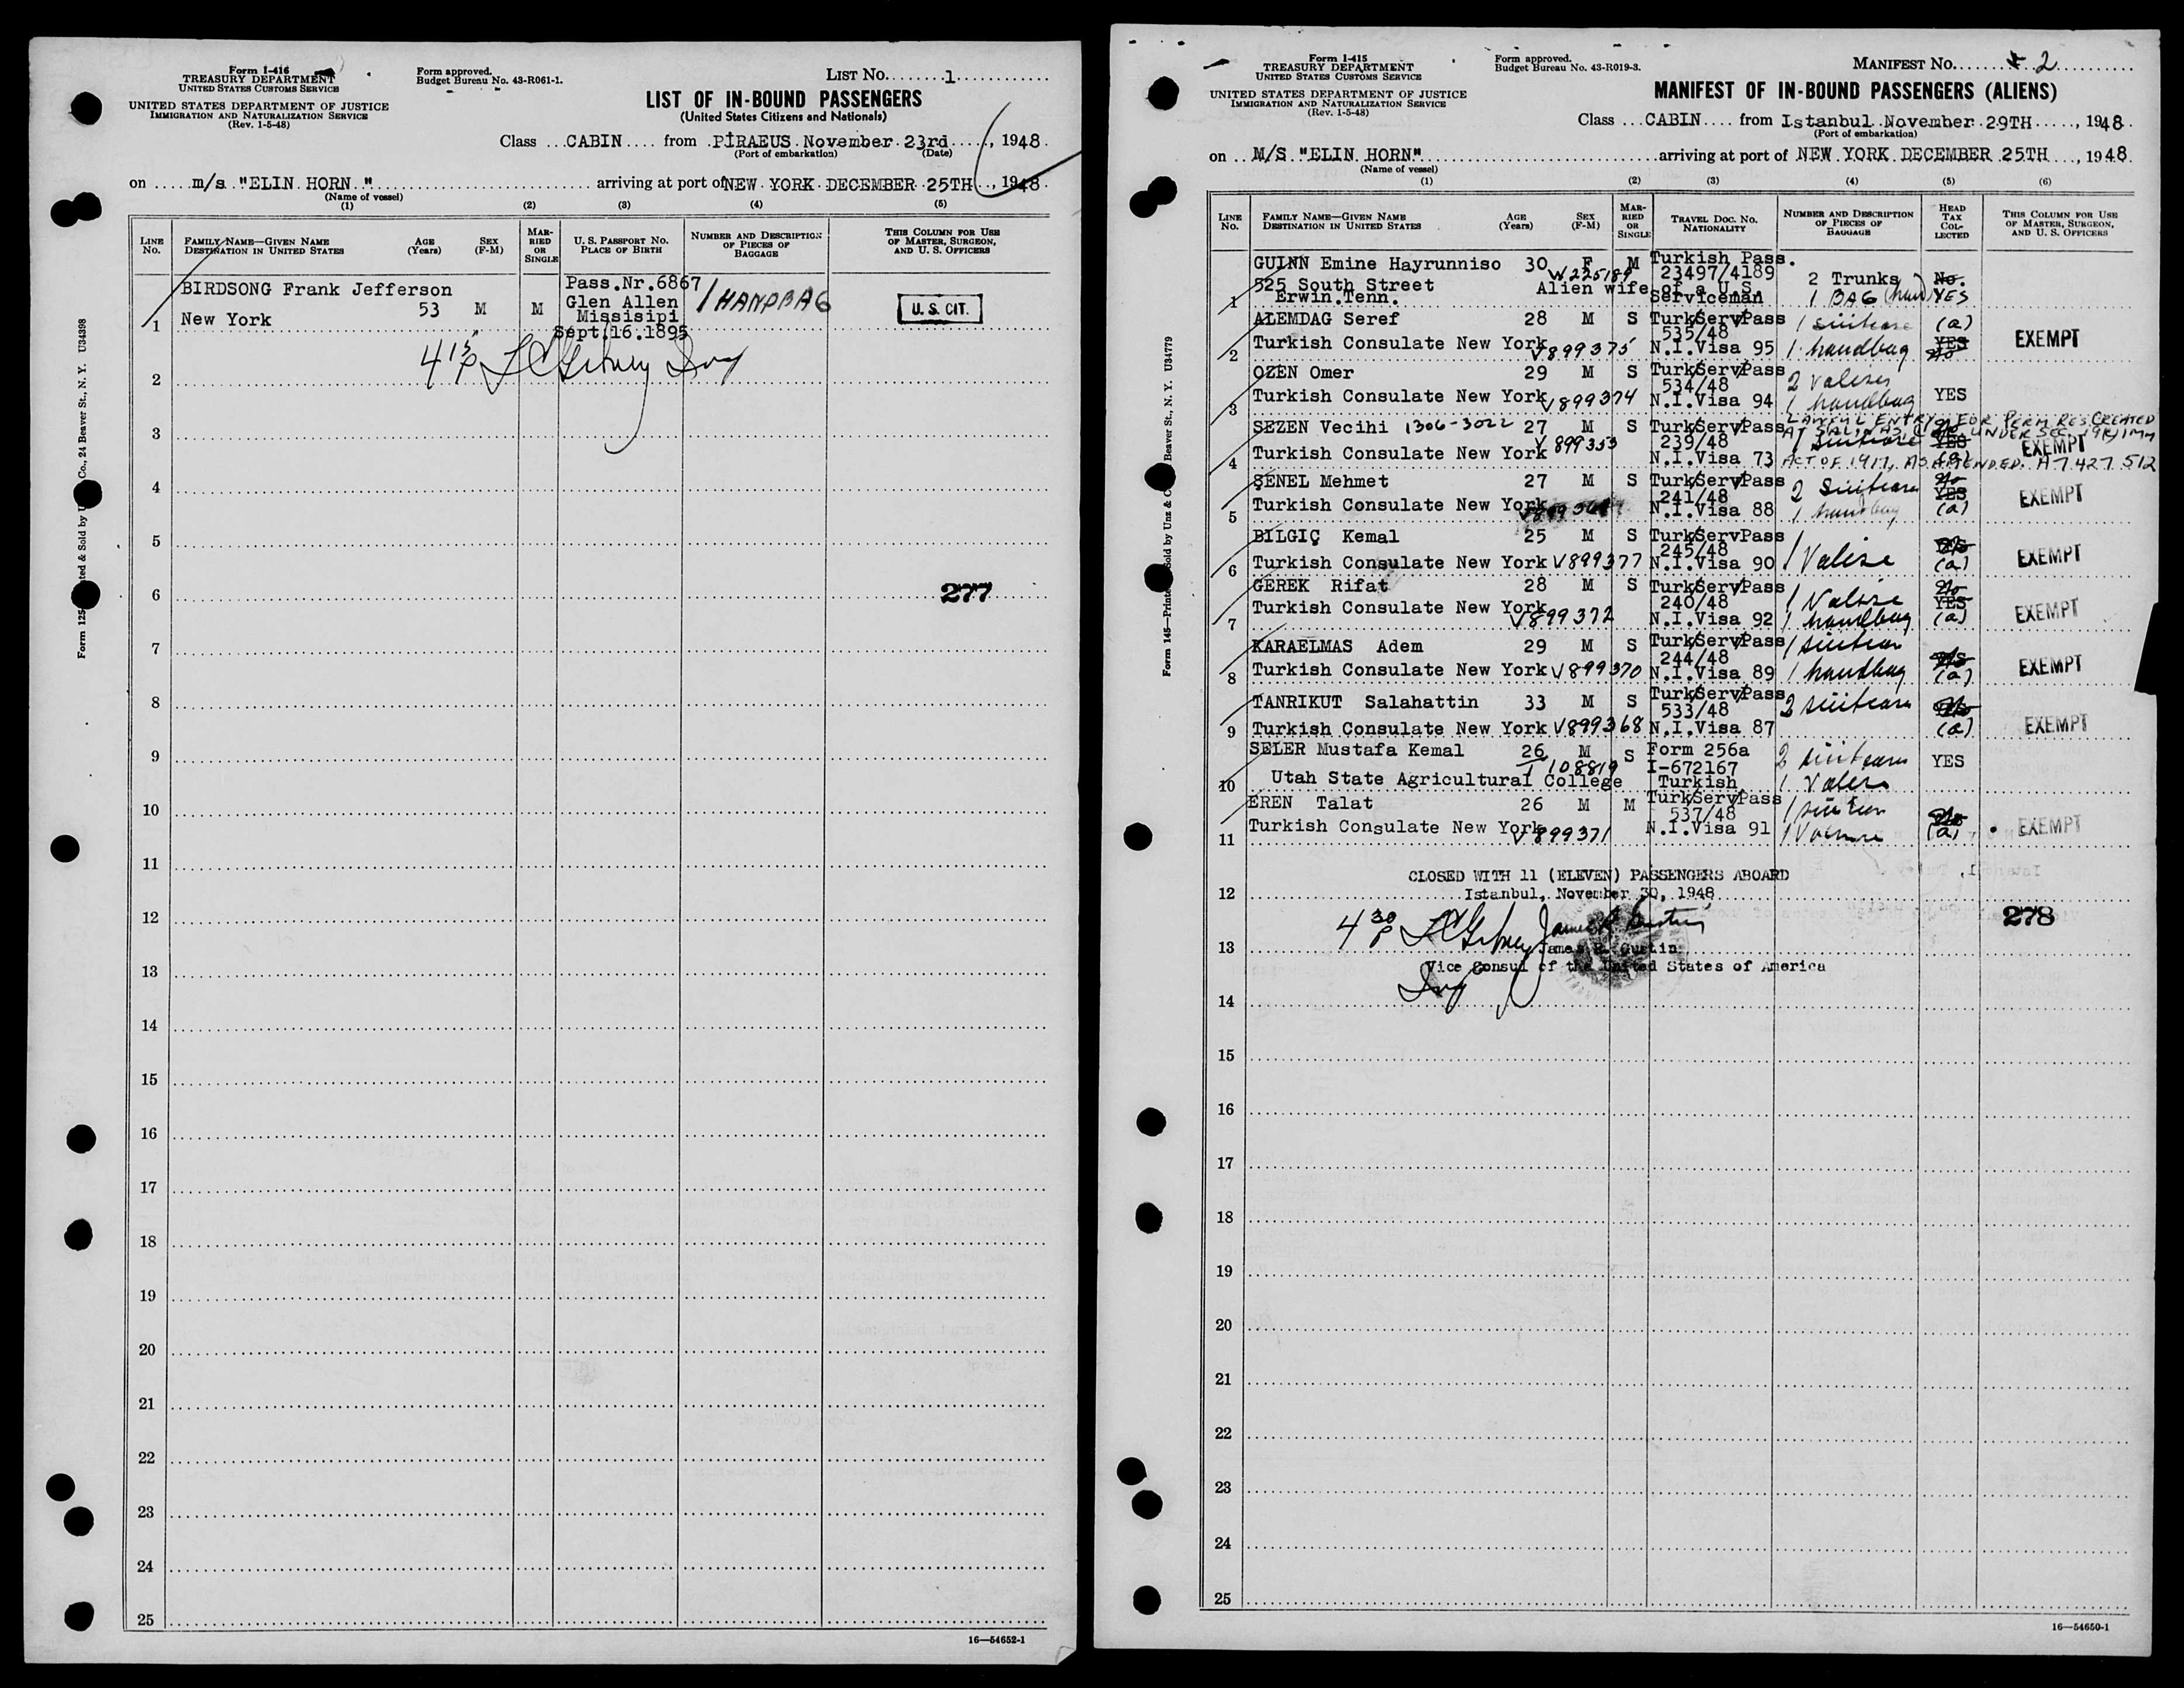 Form I-416
TREASURY DEPARTMENT
UNITED STATES CUSTOMS SERVICE
UNITED STATES DEPARTMENT OF JUSTICE
IMMIGRATION AND NATURALIZATION SERVICE
(Rev. 1-5-48)
Form approved.
Budget Bureau No. 43-R061-1.
LIST No. 1
LIST OF IN-BOUND PASSENGERS
(United States Citizens and Nationals)
Class CABIN from PIRAEUS November 23rd, 1948
(Port of embarkation) (Date)
on m/s "ELIN HORN" arriving at port of NEW YORK DECEMBER 25TH, 1948
(Name of vessel)
(1) (2) (3) (4) (5)
LINE No. FAMILY NAME—GIVEN NAME DESTINATION IN UNITED STATES AGE (Years) SEX (F-M) MARRIED OR SINGLE U. S. PASSPORT No. PLACE OF BIRTH NUMBER AND DESCRIPTION OF PIECES OF BAGGAGE THIS COLUMN FOR USE OF MASTER, SURGEON, AND U. S. OFFICERS
1 BIRDSONG Frank Jefferson 53 M M Pass.Nr.6867 1 HANDBAG U. S. CIT.
New York Glen Allen
Missisipi
Sept.16.1895
4 15 P
2
3
4
5
6 277
7
8
9
10
11
12
13
14
15
16
17
18
19
20
21
22
23
24
25
16—54652-1
Co., 24 Beaver St., N. Y. U34398
Form I-415
TREASURY DEPARTMENT
UNITED STATES CUSTOMS SERVICE
UNITED STATES DEPARTMENT OF JUSTICE
IMMIGRATION AND NATURALIZATION SERVICE
(Rev. 1-5-48)
Form approved.
Budget Bureau No. 43-R019-3.
MANIFEST No. 2
MANIFEST OF IN-BOUND PASSENGERS (ALIENS)
Class CABIN from Istanbul November 29TH, 1948
(Port of embarkation)
on M/S "ELIN HORN" arriving at port of NEW YORK DECEMBER 25TH, 1948
(Name of vessel)
(1) (2) (3) (4) (5) (6)
LINE No. FAMILY NAME—GIVEN NAME DESTINATION IN UNITED STATES AGE (Years) SEX (F-M) MARRIED OR SINGLE TRAVEL DOC. No. NATIONALITY NUMBER AND DESCRIPTION OF PIECES OF BAGGAGE HEAD TAX COLLECTED THIS COLUMN FOR USE OF MASTER, SURGEON, AND U. S. OFFICERS
GUINN Emine Hayrunniso 30 F M Turkish Pass.
W225189 23497/4189 2 Trunks No.
525 South Street Alien wife of a U.S. Serviceman 1 BAG (hand) YES
1 Erwin.Tenn.
ALEMDAG Seref 28 M S TurkServPass 1 suitcase (a) EXEMPT
535/48
2 Turkish Consulate New York V899375 N.I.Visa 95 1 handbag YES No
OZEN Omer 29 M S TurkServPass 2 valises
534/48
3 Turkish Consulate New York V899374 N.I.Visa 94 1 handbag YES
LAWFUL ENTRY FOR PERM RES CREATED
SEZEN Vecihi 1306-3022 27 M S TurkServPass
AT SALINAS UNDER SEC. 19(c) IMM
239/48 1 suitcase YES EXEMPT
4 Turkish Consulate New York V899353 N.I.Visa 73 (a)
ACT OF 1917, AS AMENDED. A7 427 512
ŞENEL Mehmet 27 M S TurkServPass 2 Suitcase No YES EXEMPT
241/48
5 Turkish Consulate New York N.I.Visa 88 1 handbag (a)
BILGIÇ Kemal 25 M S TurkServPass
245/48
6 Turkish Consulate New York V899377 N.I.Visa 90 1 Valise (a) EXEMPT
GEREK Rifat 28 M S TurkServPass 1 Valise No YES EXEMPT
240/48
7 Turkish Consulate New York V899372 N.I.Visa 92 1 handbag (a)
KARAELMAS Adem 29 M S TurkServPass 1 suitcase
244/48
8 Turkish Consulate New York V899370 N.I.Visa 89 1 handbag (a) EXEMPT
TANRIKUT Salahattin 33 M S TurkServPass 2 suitcase
533/48
9 Turkish Consulate New York V899368 N.I.Visa 87 (a) EXEMPT
SELER Mustafa Kemal 26 M S Form 256a 2 suitcases YES
I 108819 I-672167
10 Utah State Agricultural College Turkish 1 Valise
EREN Talat 26 M M TurkServPass 1 suitcase
537/48
11 Turkish Consulate New York V899371 N.I.Visa 91 1 Valise (a) EXEMPT
CLOSED WITH 11 (ELEVEN) PASSENGERS ABOARD
12 Istanbul, November 30, 1948
278
4 30 P
13 James R. Gustin
Vice Consul of the United States of America
14
15
16
17
18
19
20
21
22
23
24
25
16—54650-1
Sold by Unz & Co., Beaver St., N. Y. U34779